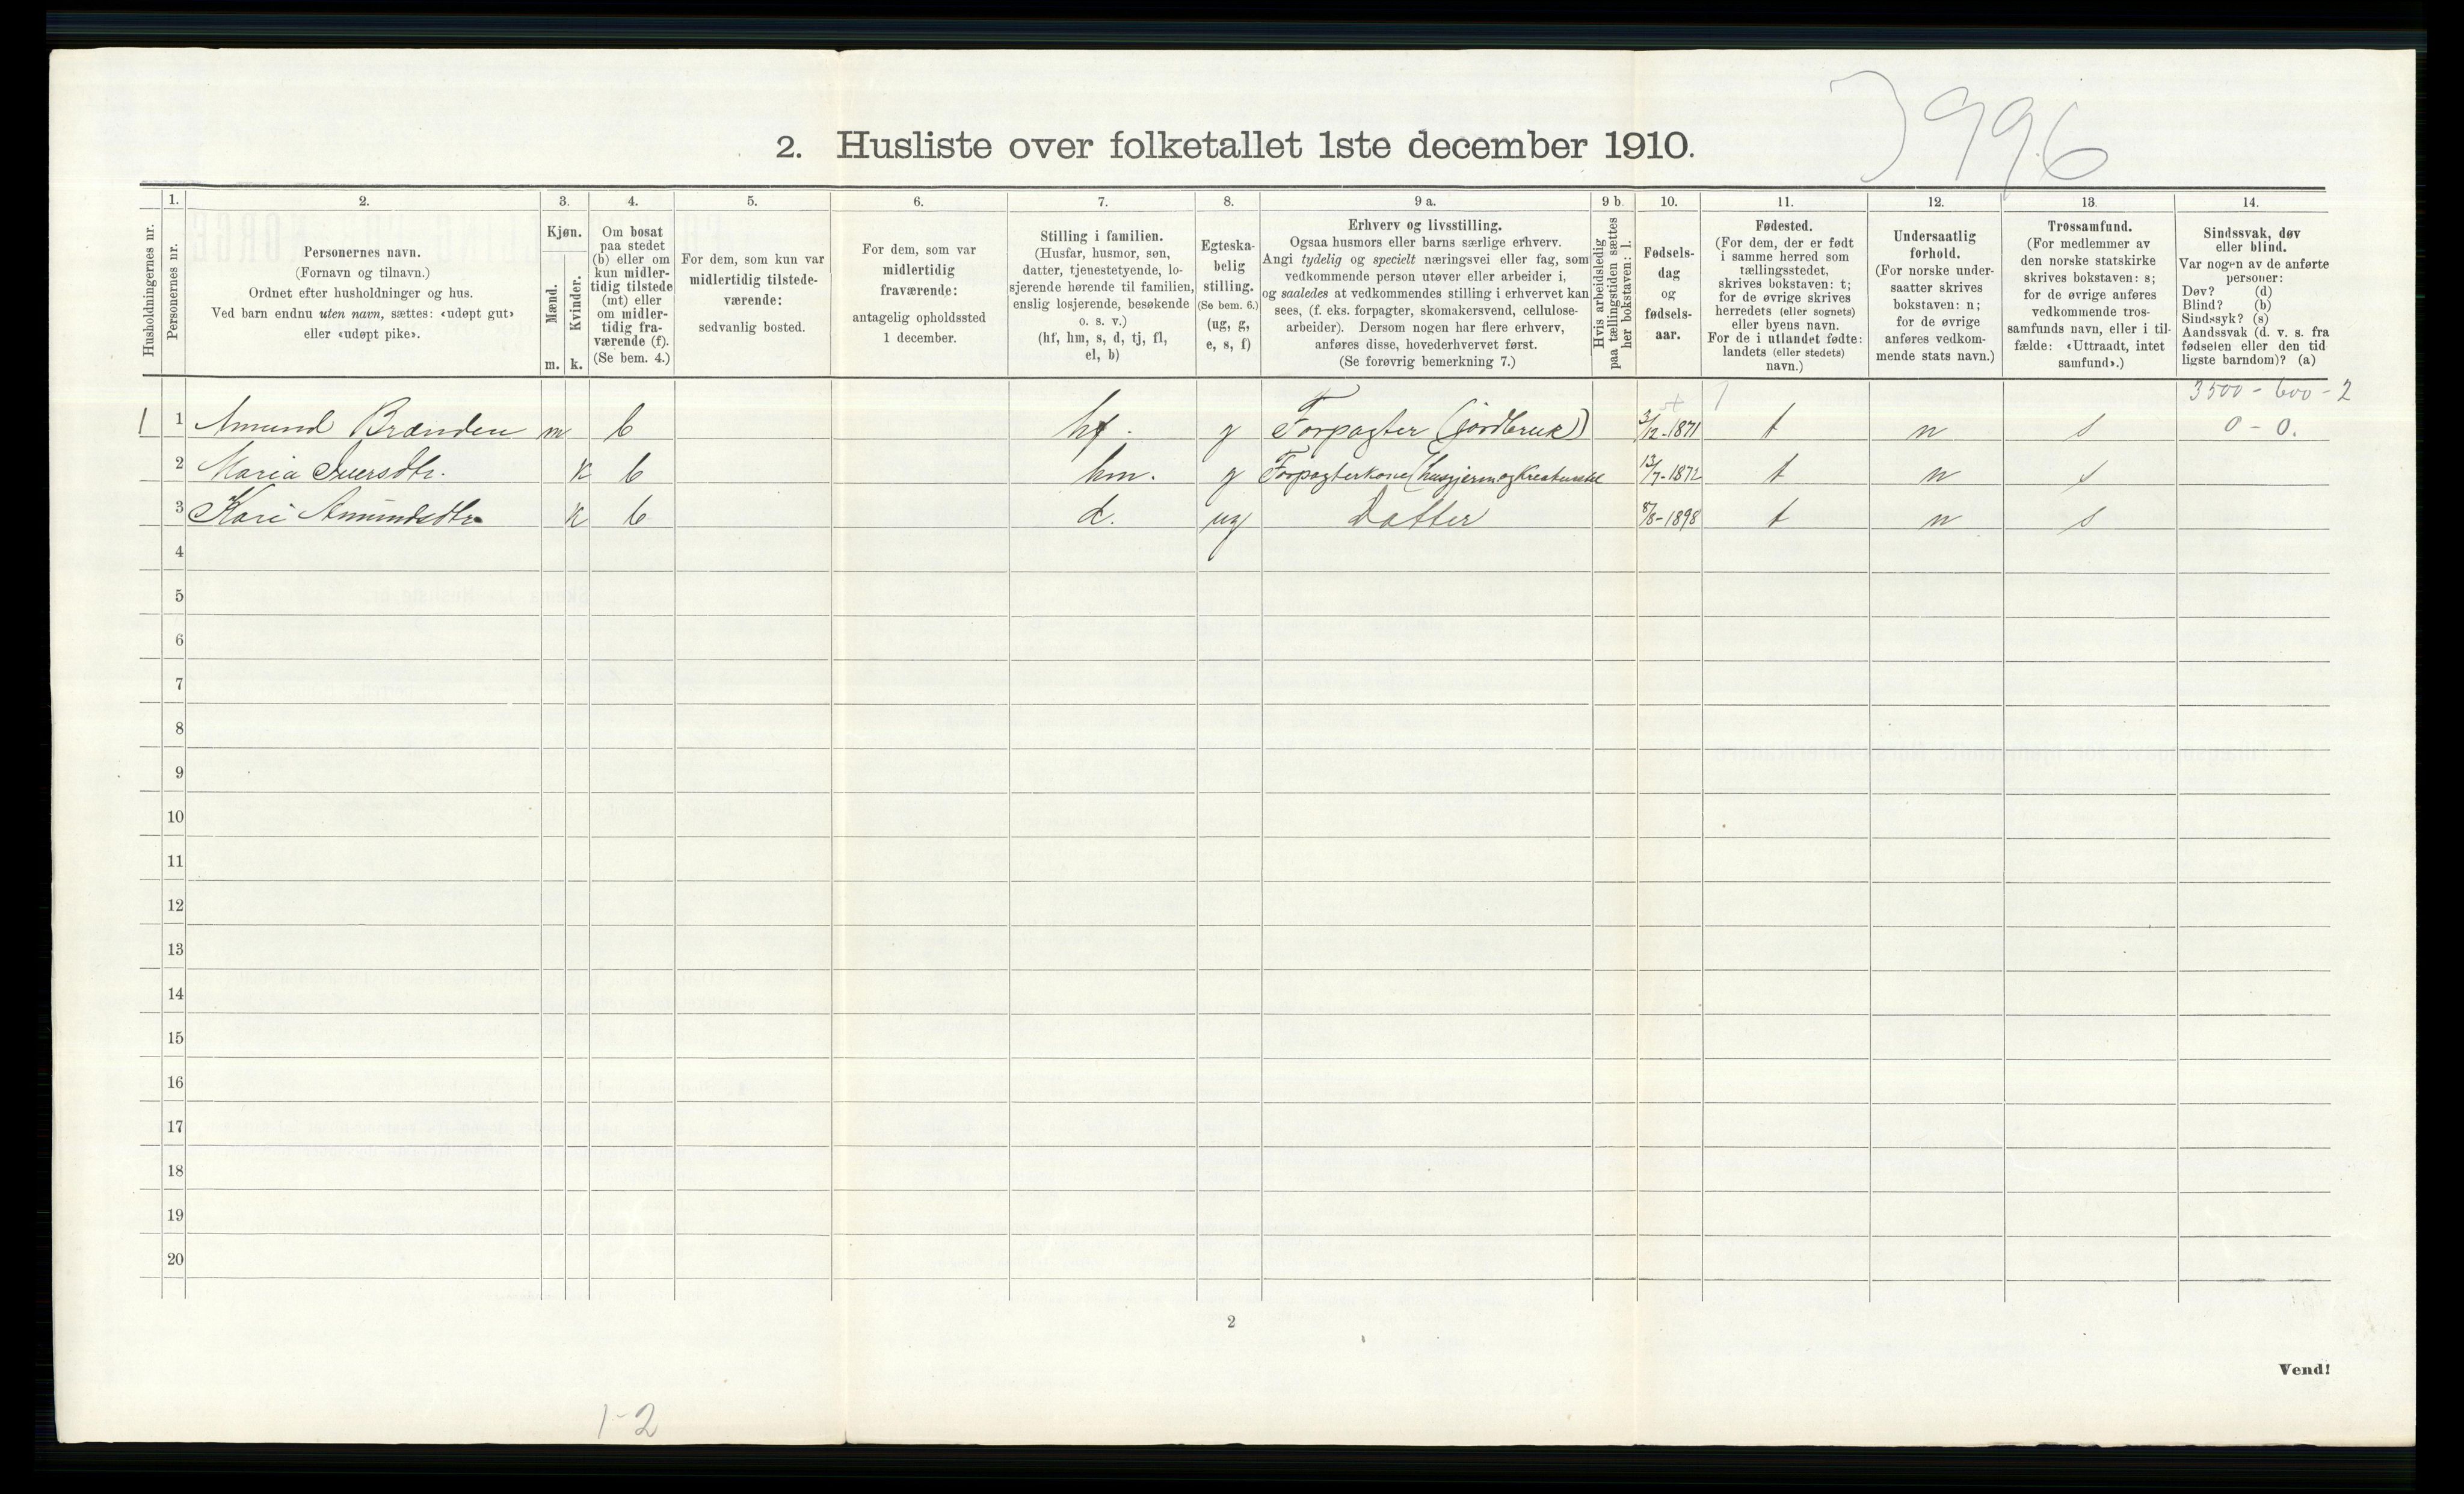 3996
2. Husliste over folketallet 1ste december 1910.
Husholdningernes nr.
1.
Personernes nr.
2.
Personernes navn.
(Fornavn og tilnavn.)
Ordnet efter husholdninger og hus.
Ved barn endnu uten navn, sættes: «udøpt gut»
eller «udøpt pike».
3.
Kjøn.
Mænd.
Kvinder.
m.
k.
4.
Om bosat
paa stedet
(b) eller om
kun midler-
tidig tilstede
(mt) eller
om midler-
tidig fra-
værende (f).
(Se bem. 4.)
5.
For dem, som kun var
midlertidig tilstede-
værende:
sedvanlig bosted.
6.
For dem, som var
midlertidig
fraværende:
antagelig opholdssted
1 december.
7.
Stilling i familien.
(Husfar, husmor, søn,
datter, tjenestetyende, lo-
sjerende hørende til familien,
enslig losjerende, besøkende
o. s. v.)
(hf, hm, s, d, tj, fl,
el, b)
8.
Egteska-
belig
stilling.
(Se bem. 6.)
(ug, g,
e, s, f)
9 a.
Erhverv og livsstilling.
Ogsaa husmors eller barns særlige erhverv.
Angi tydelig og specielt næringsvei eller fag, som
vedkommende person utøver eller arbeider i,
og saaledes at vedkommendes stilling i erhvervet kan
sees, (f. eks. forpagter, skomakersvend, cellulose-
arbeider). Dersom nogen har flere erhverv,
anføres disse, hovederhvervet først.
(Se forøvrig bemerkning 7.)
9 b.
Hvis arbeidsledig
paa tællingstiden sættes
her bokstaven: l.
10.
Fødsels-
dag
og
fødsels-
aar.
11.
Fødested.
(For dem, der er født
i samme herred som
tællingsstedet,
skrives bokstaven: t;
for de øvrige skrives
herredets (eller sognets)
eller byens navn.
For de i utlandet fødte:
landets (eller stedets)
navn.)
12.
Undersaatlig
forhold.
(For norske under-
saatter skrives
bokstaven: n;
for de øvrige
anføres vedkom-
mende stats navn.)
13.
Trossamfund.
(For medlemmer av
den norske statskirke
skrives bokstaven: s;
for de øvrige anføres
vedkommende tros-
samfunds navn, eller i til-
fælde: «Uttraadt, intet
samfund».)
14.
Sindssvak, døv
eller blind.
Var nogen av de anførte
personer:
Døv? (d)
Blind? (b)
Sindssyk? (s)
Aandssvak (d. v. s. fra
fødselen eller den tid
ligste barndom)? (a)
3500 - 600 - 2
1 1 Amund Brænden m b hf. g Forpagter (jordbruk) 3/12-1871 t n s 0 - 0.
2 Maria Iversdtr. k b hm. g Forpagterkone (husgjerm og Kreaturstel 13/7-1872 t n s
3 Kari Amundsdtr k b d. ug Datter 8/8-1898 t n s
4
5
6
7
8
9
10
11
12
13
14
15
16
17
18
19
20
2
Vend!
1-2